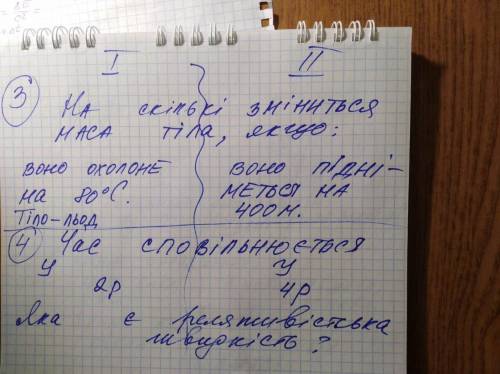 I II
3 На скількі зміниться
маса тіла, якщо:
воно охолоне
на 80°C.
Тіло-льод
воно підні-
меться на
400м.
4 Час сповільнюється
у у
2р 4р
Яка є релятивістська
швидкість?